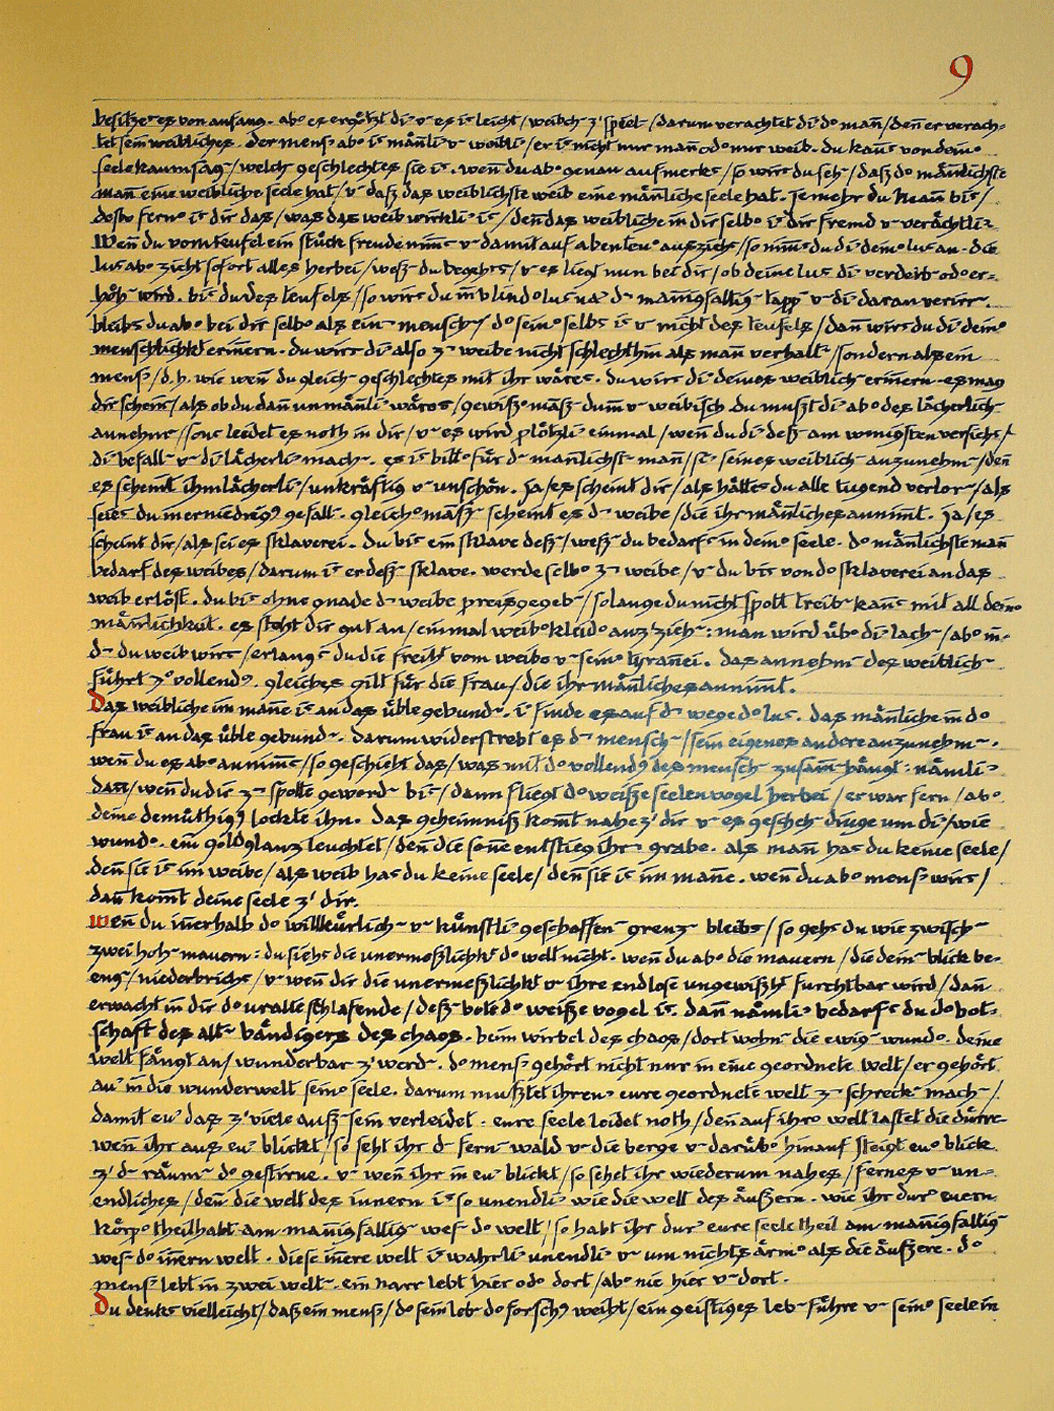 9
besitzes es von anfang. abº es ergötzt di˜ v˜ es iˢ leicht / weiblich z' spielˉ / darum verachtet di˜ dº mañ / deñ er verach-
tet sein weibliches. der mensˢ abº iˢ mäñli˜ v˜ weibli˜ / er iˢ nicht nur mañ odº nur weib. du kañˢ von deinº
seele kaum sagˉ / welchˉ geschlechtes sie iˢ. weñ du abº genau aufmerkˢ / so wirˢ du sehˉ / daß dº mäñlichste
mañ eine weibliche seele hat / v˜ daß das weiblichste weib eine mäñliche seele hat. je mehr du mañ biˢ /
destº fernº iˢ dir das / was das weib wirkli˜ iˢ / deñ das weibliche in dir selbº iˢ dir fremd v˜ verächtli˜.
weñ du vom teufel ein stück freude nimˢ v˜ damit auf abenteuº ausziehˢ / so nimˢ du di˜ deinº luˢ an. die
luˢ abº zieht sofort alles herbei / weßˉ du begehrˢ / v˜ es liegt nun bei dir / ob deine luˢ di˜ verdirbt odº er-
höhˉ wird. biˢ du des teufels / so wirˢ du in blindº luˢ na˜ dˉ mañigfaltigˉ tappˉ v˜ di˜ daran verirrˉ.
bleibˢ du abº bei dir selbº als ein mensch / dº seinº selbˢ iˢ v˜ nicht des teufels / dañ wirˢ du di˜ deinº
menschlichkt eriñern. du wirˢ di˜ also zˉ weibe nicht schlechthin als mañ verhaltˉ / sondern als ein
mensˢ / d.h. wie weñ du gleichˉ geschlechtes mit ihr wäreˢ. du wirˢ di˜ deines weiblichˉ eriñern. es mag
dir scheinˉ / als ob du dañ unmäñli˜ wäreˢ / gewißº maßˉ dum v˜ weibisch. du mußt di˜ abº des lächerlichˉ
annehmˉ / sonˢ leidet es noth in dir / v˜ es wird plötzli˜ einmal / weñ du di˜ deßˉ am wenigsten versiehˢ /
di˜ befallˉ v˜ di˜ lächerli˜ machˉ. es iˢ bittº für dˉ mäñlichstˉ mañ / si˜ seines weiblichˉ anzunehmˉ / deñ
es scheint ihm lächerli˜ / unkräftig v˜ unschön. ja / es scheint dir / als hätteˢ du alle tugend verlorˉ / als
seieˢ du in erniedrigᵍ gefallˉ. gleichº maßˉ scheint es dˉ weibe / die ihr mäñliches anniṁt. ja / es
scheint dir / als sei es sklaverei. du biˢ ein sklave deßˉ / weßˉ du bedarfˢ in deinº seele. dº mäñlichste mañ
bedarf des weibes / darum iˢ er deßˉ sklave. werde selbº zˉ weibe / v˜ du biˢ von dº sklaverei an das
weib erlöst. du biˢ ohne gnade dˉ weibe preisgegebˉ / solange du nicht spott treibˉ kañˢ mit all deinº
mäñlichkeit. es steht dir gut an / einmal weibºkleidº anz'ziehˉ: man wird übº di˜ lachˉ / abº in-
dˉ du weib wirˢ / erlangˢ du die freiht vom weibe v˜ seinº tyrañei. das annehmˉ des weiblichˉ
führt zº vollendᵍ. gleiches gilt für die frau / die ihr mäñliches anniṁt.
das weibliche im mañe iˢ an das üble gebundˉ. i˜ finde es auf dˉ wege dº luˢ. das mäñliche in dº
frau iˢ an das üble gebundˉ. darum widerstrebt es dˉ menschˉ / sein eigenes andere anzunehmˉ.
weñ du es abº annimˢ / so geschieht das / was mit dº vollendᵍ des menschˉ zusam̄hängt: nämli˜
dañ / weñ du dir zˉ spotte gewordˉ biˢ / dann fliegt dº weiße seelenvogel herbei / er war fern / abº
deine demüthigᵍ lockte ihn. das geheimniß kom̄t nahe z' dir v˜ es geschehˉ dinge um di˜ / wie
wundº. ein goldglanz leuchtet / deñ die soñe entstieg ihrˉ grabe. als mañ haˢ du keine seele /
deñ sie iˢ im weibe / als weib haˢ du keine seele / deñ sie iˢ im mañe. weñ du abº mensˢ wirˢ /
dañ kom̄t deine seele z' dir.
weñ du iñerhalb dº willkürlichˉ v˜ künstli˜ geschaffenˉ grenzˉ bleibˢ / so gehˢ du wie zwischˉ
zwei hohˉ mauern: du siehˢ die unermeßlichkt dº welt nicht. weñ du abº die mauern / die deinˉ blick be-
engˉ / niederbrichˢ / v˜ weñ dir die unermeßlichkt v˜ ihre endlose ungewißht furchtbar wird / dañ
erwacht in dir dº uralte schlafende / deßˉ bote dº weiße vogel iˢ. dañ nämli˜ bedarfˢ du dº bot-
schaft des altˉ bändigers des chaos. beim wirbel des chaos / dort wohnˉ die ewigˉ wundº. deine
welt fängt an / wunderbar z' werdˉ. dº mensˢ gehört nicht nur in eine geordnete welt / er gehört
au˜ in die wunderwelt seinº seele. darum mußtet ihr eure geordnete welt zˉ schreckˉ machˉ /
damit eu˜ das z' viele außˉ sein verleidet. eure seele leidet noth / deñ auf ihrº welt lastet die dürre.
weñ ihr aus eu˜ blickt / so seht ihr dˉ fernˉ wald v˜ die berge v˜ darübº hinauf steigt euº blick
z' dˉ räumˉ dº gestirne. v˜ weñ ihr in eu˜ blickt / so sehet ihr wiederum nahes / fernes v˜ un-
endliches / deñ die welt des iñern iˢ so unendli˜ wie die welt des äußern. wie ihr dur˜ euern
körpº theilhabt am mañigfaltigˉ wesˉ dº welt / so habt ihr dur˜ eure seele theil am mañigfaltigˉ
wesˉ dº iñern welt. diese iñere welt iˢ wahrli˜ unendli˜ v˜ um nichts ärmº als die äußere. dº
mensˢ lebt in zwei weltˉ. ein narr lebt hier odº dort / abº nie hier v˜ dort.
du denkˢ vielleicht / daß ein mensˢ / dº sein lebˉ dº forschᵍ weiht / ein geistiges lebˉ führe v˜ seinº seele in